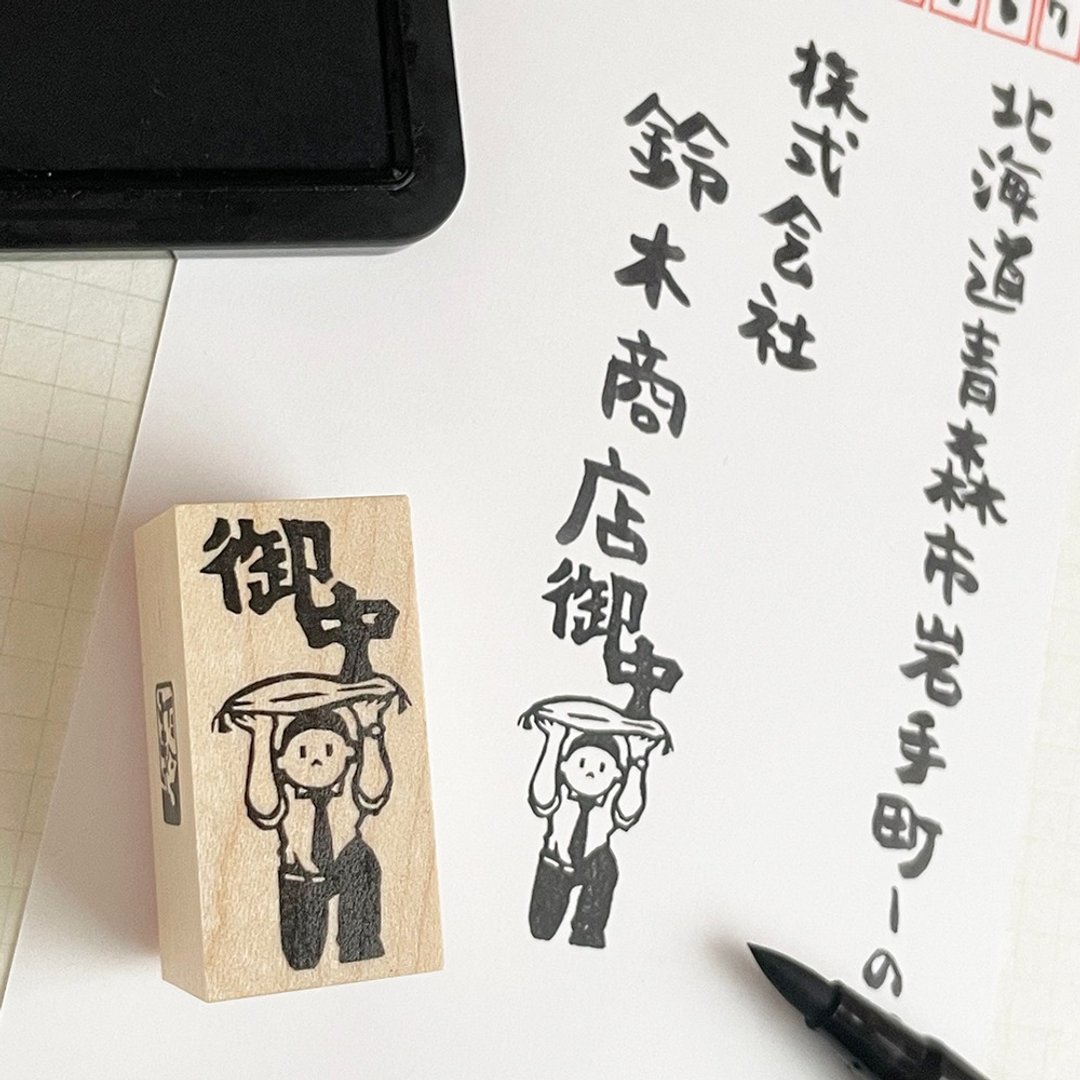 北海道青森市岩手町一の
株式会社
鈴木商店
御中
御中